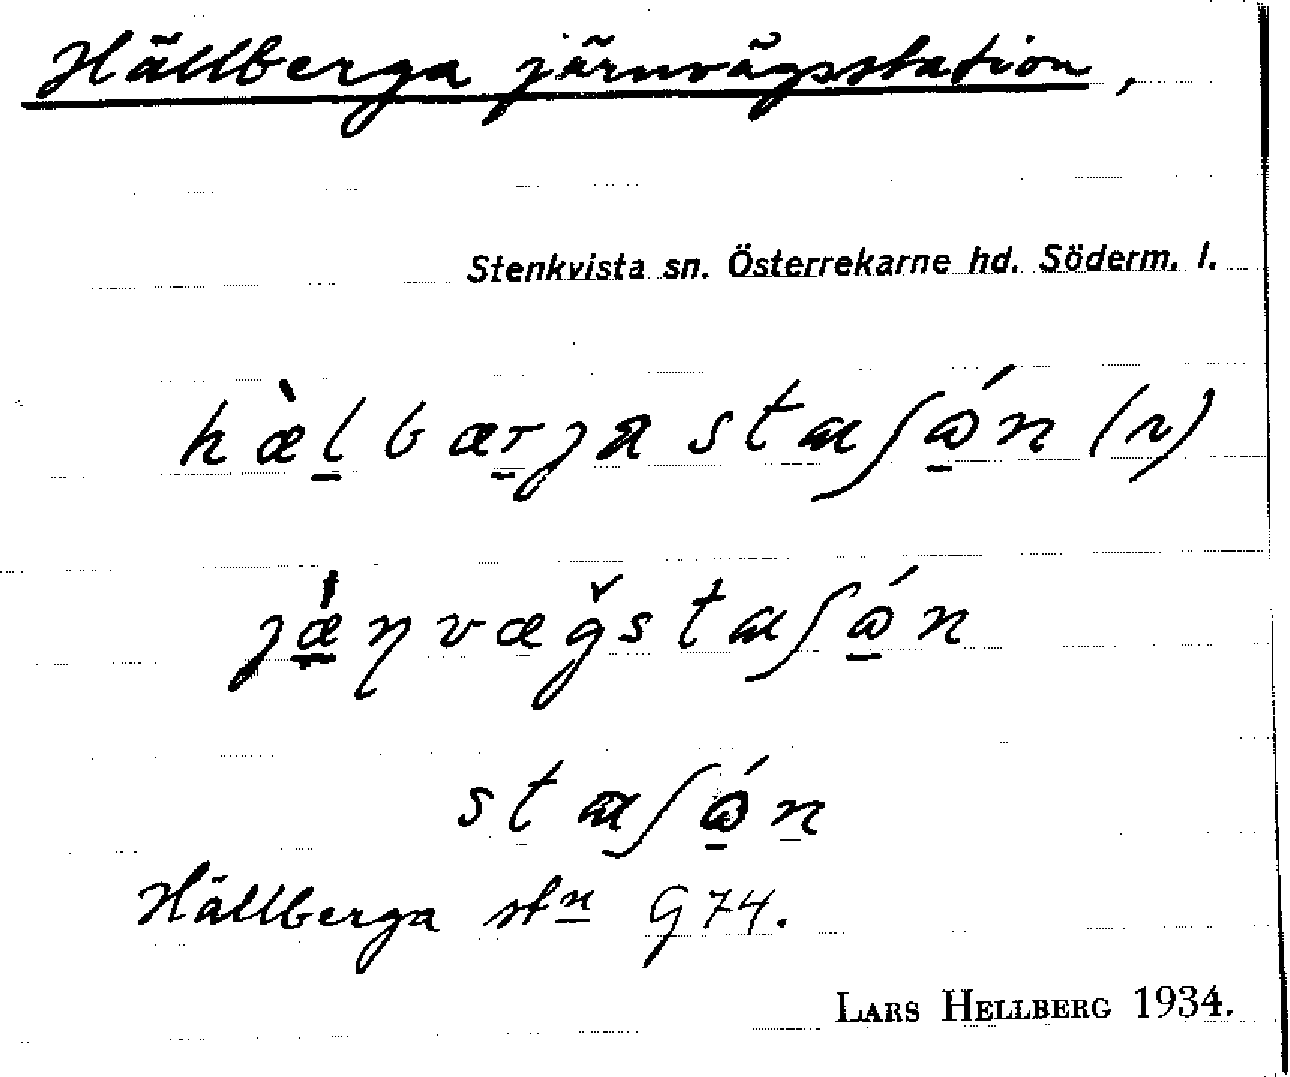 Hällberga järnvägsstation,
Stenkvista sn. Österrekarne hd. Söderm. l.
hæ̀l̲bær̲ja staʃɷ̲́n (r)
jæ̲̀ɳvæǧstaʃɷ̲́n
staʃɷ̲́n̲
Hällberga stn G 74.
LARS HELLBERG 1934.